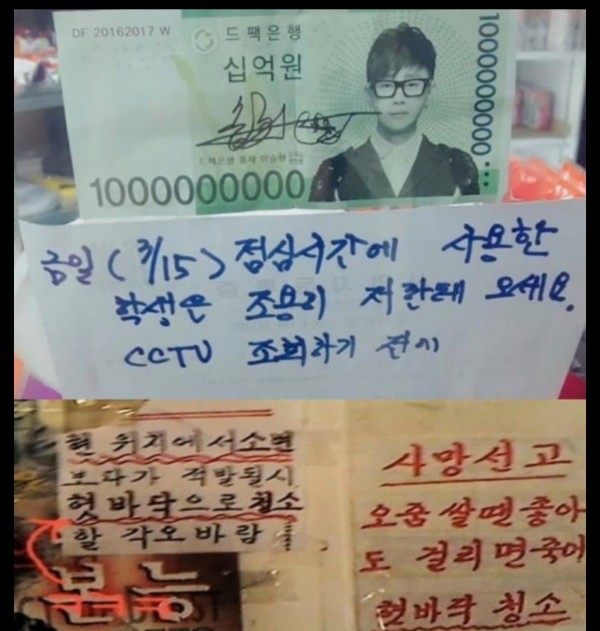 DF 20162017 W
드팩은행
십억원
드팩은행 총재 이승환
1000000000
1000000000
금일 (3/15) 점심시간에 사용한
학생은 조용히 저한테 오세요.
CCTV 조회하기 전에
현 위치에서소변
보다가 적발될시
혓바닥으로청소
할 각오바람
본능
사망선고
오줌쌀땐좋아
도 걸리면죽어
혓바닥 청소